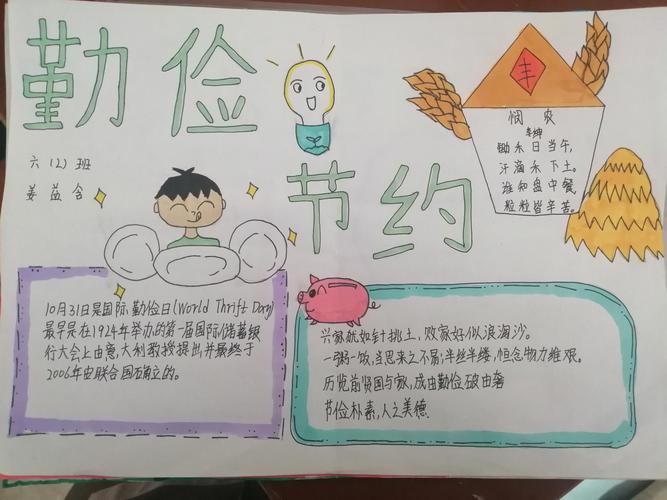 勤俭
节约
六(2)班
姜益含
丰
悯农
李绅
锄禾日当午,
汗滴禾下土。
谁知盘中餐,
粒粒皆辛苦。
10月31日是国际勤俭日(World Thrift Day)
最早是在1924年举办的第一届国际储蓄银
行大会上由意大利教授提出,并最终于
2006年由联合国确立的。
兴家就如针挑土,败家好似浪淘沙。
一粥一饭,当思来之不易;半丝半缕,恒念物力维艰。
历览前贤国与家,成由勤俭破由奢
节俭朴素,人之美德